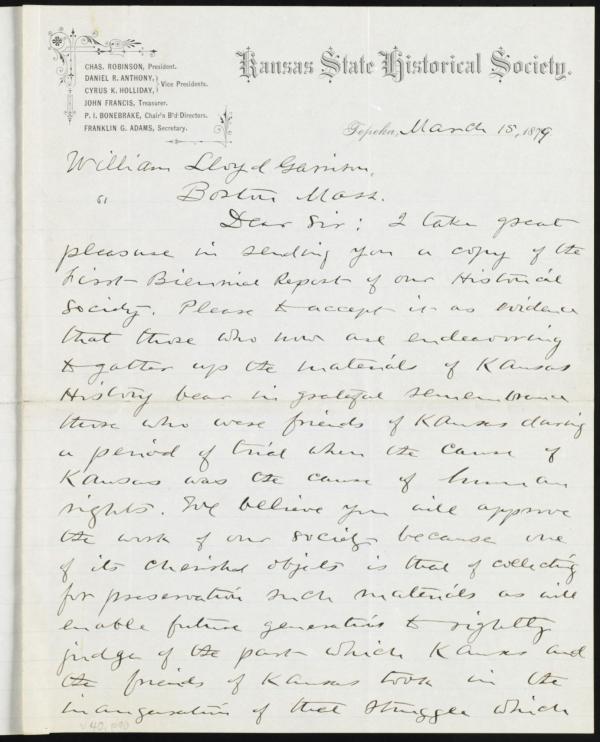 CHAS. ROBINSON, President.
DANIEL R. ANTHONY,
CYRUS K. HOLLIDAY,
Vice Presidents.
JOHN FRANCIS, Treasurer.
P. I. BONEBRAKE, Chair's B'd Directors.
FRANKLIN G. ADAMS, Secretary.
Kansas State Historical Society.
Topeka, March 15, 1879
William Lloyd Garrison,
Boston Mass.
Dear Sir: I take great
pleasure in sending you a copy of the
First Biennial Report of our Historical
Society. Please to accept it as evidence
that those who now are endeavoring
to gather up the materials of Kansas
History bear in grateful remembrance
those who were friends of Kansas during
a period of trial when the cause of
Kansas was the cause of human
rights. We believe you will approve
the work of our society because one
of its cherished objects is that of collecting
for preservation such materials as will
enable future generations to rightly
judge of the part which Kansas and
the friends of Kansas took in the
inauguration of that struggle which